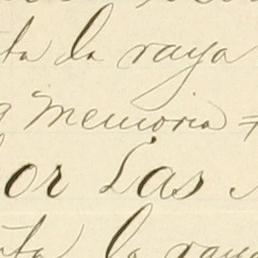 la raya
Memoria
or Las
la raya